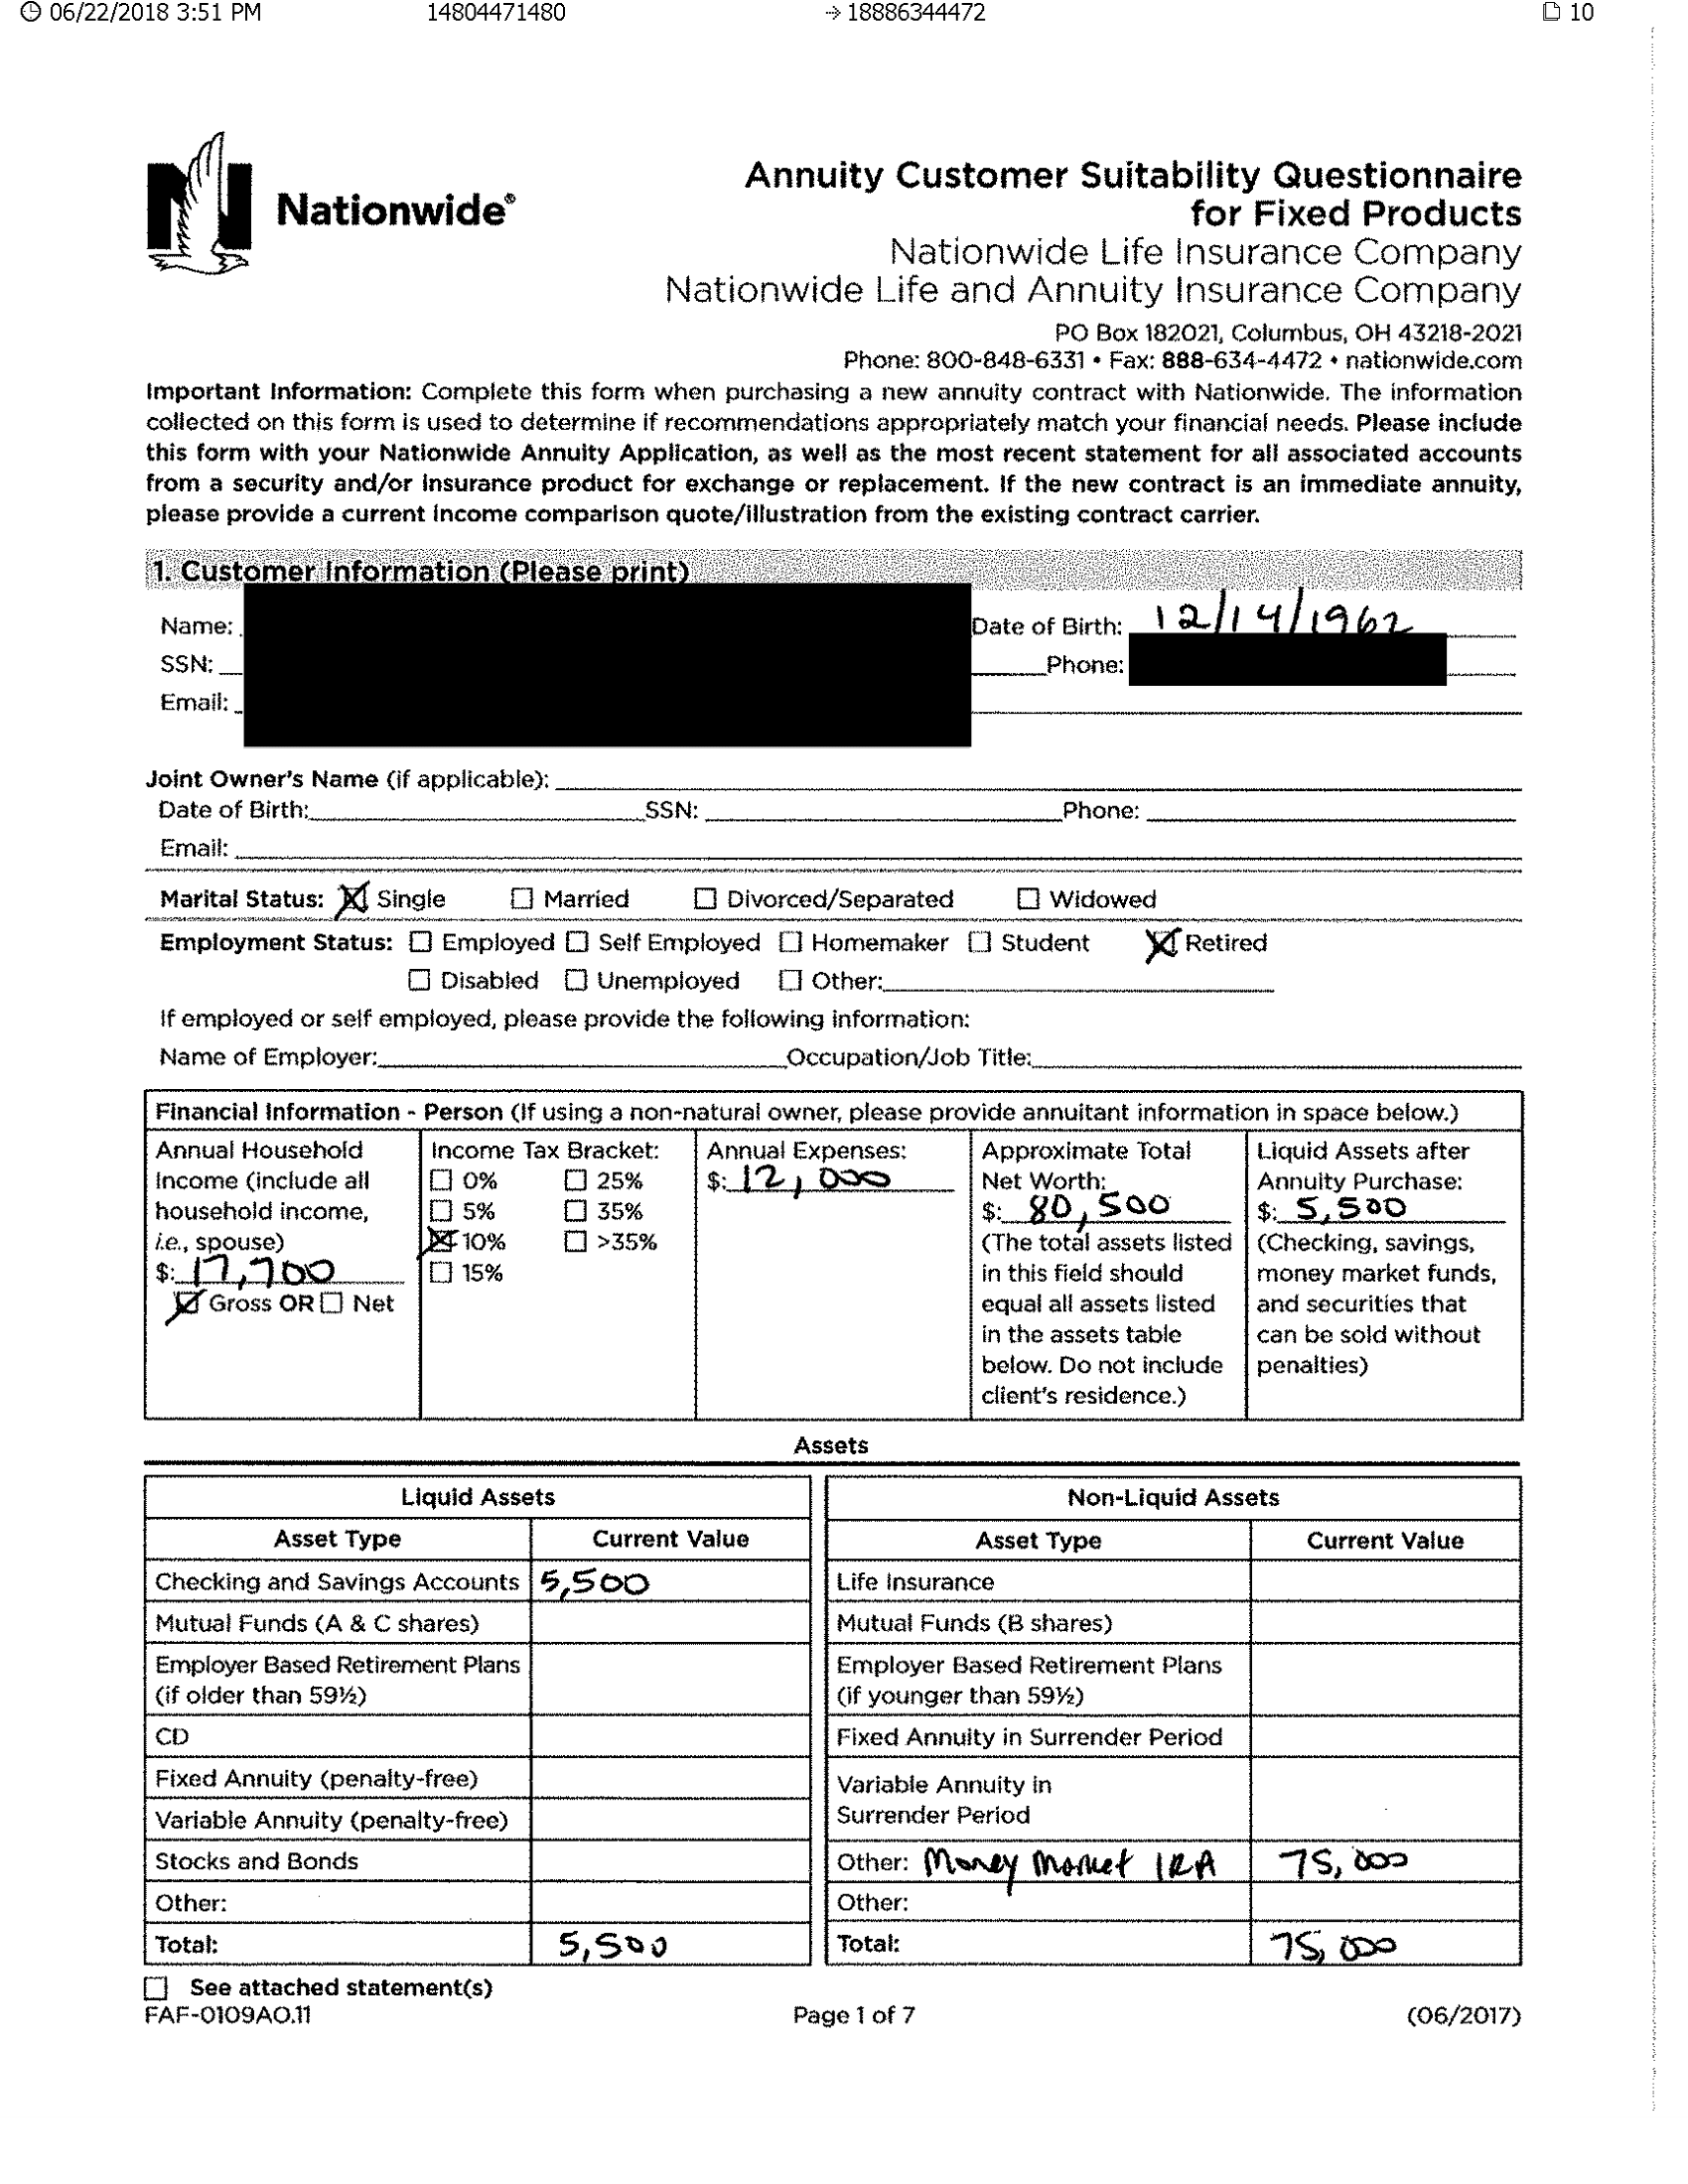 06/22/2018 3:51 PM 14804471480 → 18886344472 10
Nationwide®
Annuity Customer Suitability Questionnaire
for Fixed Products
Nationwide Life Insurance Company
Nationwide Life and Annuity Insurance Company
PO Box 182021, Columbus, OH 43218-2021
Phone: 800-848-6331 • Fax: 888-634-4472 • nationwide.com
Important Information: Complete this form when purchasing a new annuity contract with Nationwide. The information
collected on this form is used to determine if recommendations appropriately match your financial needs. Please include
this form with your Nationwide Annuity Application, as well as the most recent statement for all associated accounts
from a security and/or insurance product for exchange or replacement. If the new contract is an immediate annuity,
please provide a current income comparison quote/illustration from the existing contract carrier.
1. Customer Information (Please print)
Name: Date of Birth: 12/14/1962
SSN: Phone:
Email:
Joint Owner's Name (if applicable):
Date of Birth: SSN: Phone:
Email:
Marital Status: ☒ Single ☐ Married ☐ Divorced/Separated ☐ Widowed
Employment Status: ☐ Employed ☐ Self Employed ☐ Homemaker ☐ Student ☒ Retired
☐ Disabled ☐ Unemployed ☐ Other:
If employed or self employed, please provide the following information:
Name of Employer: Occupation/Job Title:
Financial Information - Person (If using a non-natural owner, please provide annuitant information in space below.)
Annual Household
Income (include all
household income,
i.e., spouse)
$: 17,700
☒ Gross OR ☐ Net
Income Tax Bracket:
☐ 0% ☐ 25%
☐ 5% ☐ 35%
☒ 10% ☐ >35%
☐ 15%
Annual Expenses:
$: 12,000
Approximate Total
Net Worth:
$: 80,500
(The total assets listed
in this field should
equal all assets listed
in the assets table
below. Do not include
client's residence.)
Liquid Assets after
Annuity Purchase:
$: 5,500
(Checking, savings,
money market funds,
and securities that
can be sold without
penalties)
Assets
Liquid Assets
Asset Type Current Value
Checking and Savings Accounts 5,500
Mutual Funds (A & C shares)
Employer Based Retirement Plans
(if older than 59½)
CD
Fixed Annuity (penalty-free)
Variable Annuity (penalty-free)
Stocks and Bonds
Other:
Total: 5,500
Non-Liquid Assets
Asset Type Current Value
Life Insurance
Mutual Funds (B shares)
Employer Based Retirement Plans
(if younger than 59½)
Fixed Annuity in Surrender Period
Variable Annuity in
Surrender Period
Other: Money Market IRA 75,000
Other:
Total: 75,000
☐ See attached statement(s)
FAF-0109AO.11 Page 1 of 7 (06/2017)